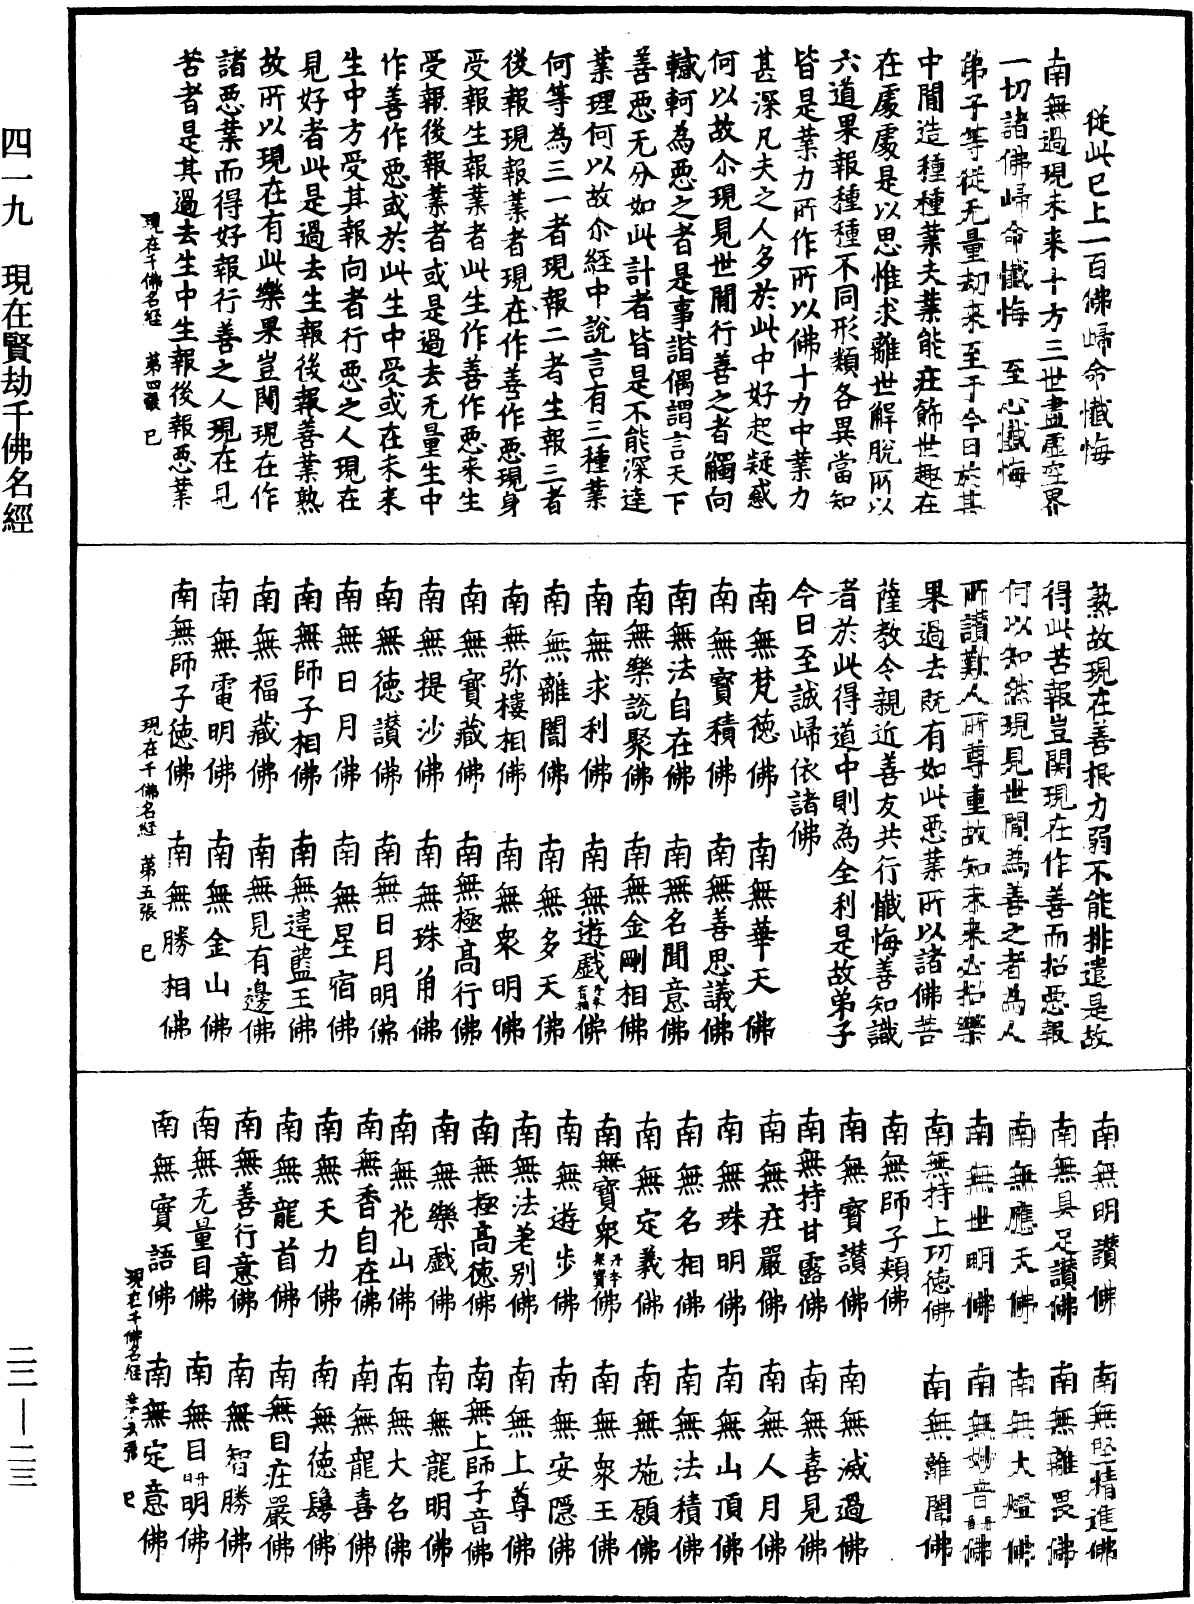 從此已上一百佛歸命懺悔
南無過現未来十方三世盡虛空界
一切諸佛歸命懺悔　至心懺悔
弟子等從无量劫来至于今日於其
中閒造種種業夫業能莊飾世趣在
在處處是以思惟求離世解脫所以
六道果報種種不同形類各異當知
皆是業力所作所以佛十力中業力
甚深凡夫之人多於此中好起疑惑
何以故尒現見世閒行善之者觸向
轗軻為惡之者是事諧偶謂言天下
善惡无分如此計者皆是不能深達
業理何以故尒經中說言有三種業
何等為三一者現報二者生報三者
後報現報業者現在作善作惡現身
受報生報業者此生作善作惡来生
受報後報業者或是過去无量生中
作善作惡或於此生中受或在未来
生中方受其報向者行惡之人現在
見好者此是過去生報後報善業熟
故所以現在有此樂果豈關現在作
諸惡業而得好報行善之人現在見
苦者是其過去生中生報後報惡業
現在千佛名經　第四張　巳
熟故現在善根力弱不能排遣是故
得此苦報豈關現在作善而招惡報
何以知然現見世閒為善之者為人
所讚歎人所尊重故知未来必招樂
果過去既有如此惡業所以諸佛菩
薩教令親近善友共行懺悔善知識
者於此得道中則為全利是故弟子
今日至誠歸依諸佛
南無梵德佛　南無華天佛
南無寶積佛　南無善思議佛
南無法自在佛　南無名聞意佛
南無樂說聚佛　南無金剛相佛
南無求利佛　南無遊戲佛
南無離闇佛　南無多天佛
南無弥樓相佛　南無衆明佛
南無寶藏佛　南無極高行佛
南無提沙佛　南無珠角佛
南無德讚佛　南無日月明佛
南無日月佛　南無星宿佛
南無師子相佛　南無違藍王佛
南無福藏佛　南無見有邊佛
南無電明佛　南無金山佛
南無師子德佛　南無勝相佛
現在千佛名經　第五張　巳
南無明讚佛　南無堅精進佛
南無具足讚佛　南無離畏佛
南無應天佛　南無大燈佛
南無世明佛　南無妙音佛
南無持上功德佛　南無離闇佛
南無師子頰佛
南無寶讚佛　南無滅過佛
南無持甘露佛　南無喜見佛
南無莊嚴佛　南無人月佛
南無珠明佛　南無山頂佛
南無名相佛　南無法積佛
南無定義佛　南無施願佛
南無寶衆佛　南無衆王佛
南無遊步佛　南無安隱佛
南無法差别佛　南無上尊佛
南無極高德佛　南無上師子音佛
南無樂戲佛　南無龍明佛
南無花山佛　南無大名佛
南無香自在佛　南無龍喜佛
南無天力佛　南無德鬘佛
南無龍首佛　南無目莊嚴佛
南無善行意佛　南無智勝佛
南無无量目佛　南無目明佛
南無實語佛　南無定意佛
現在千佛名經　第六張　巳
四一九　現在賢劫千佛名經
二二—二三